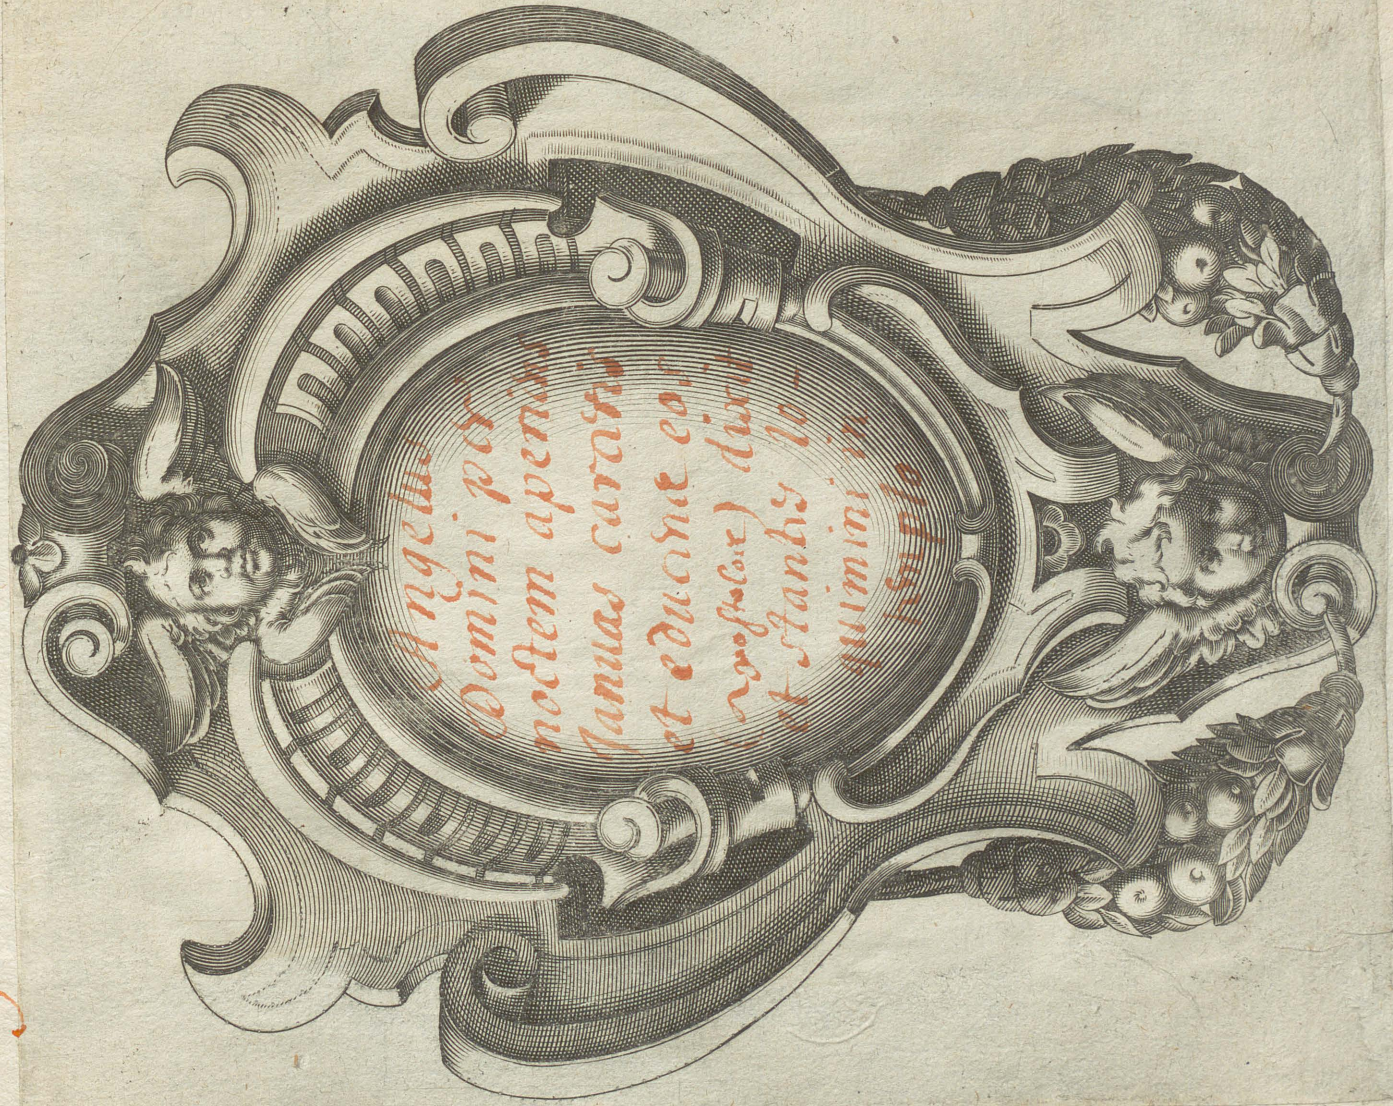 Angelus
Domini per
noctem aperiens
Januas carceris
et educens eos
(apostolos) dixit
et stantes lo-
quimini in
templo